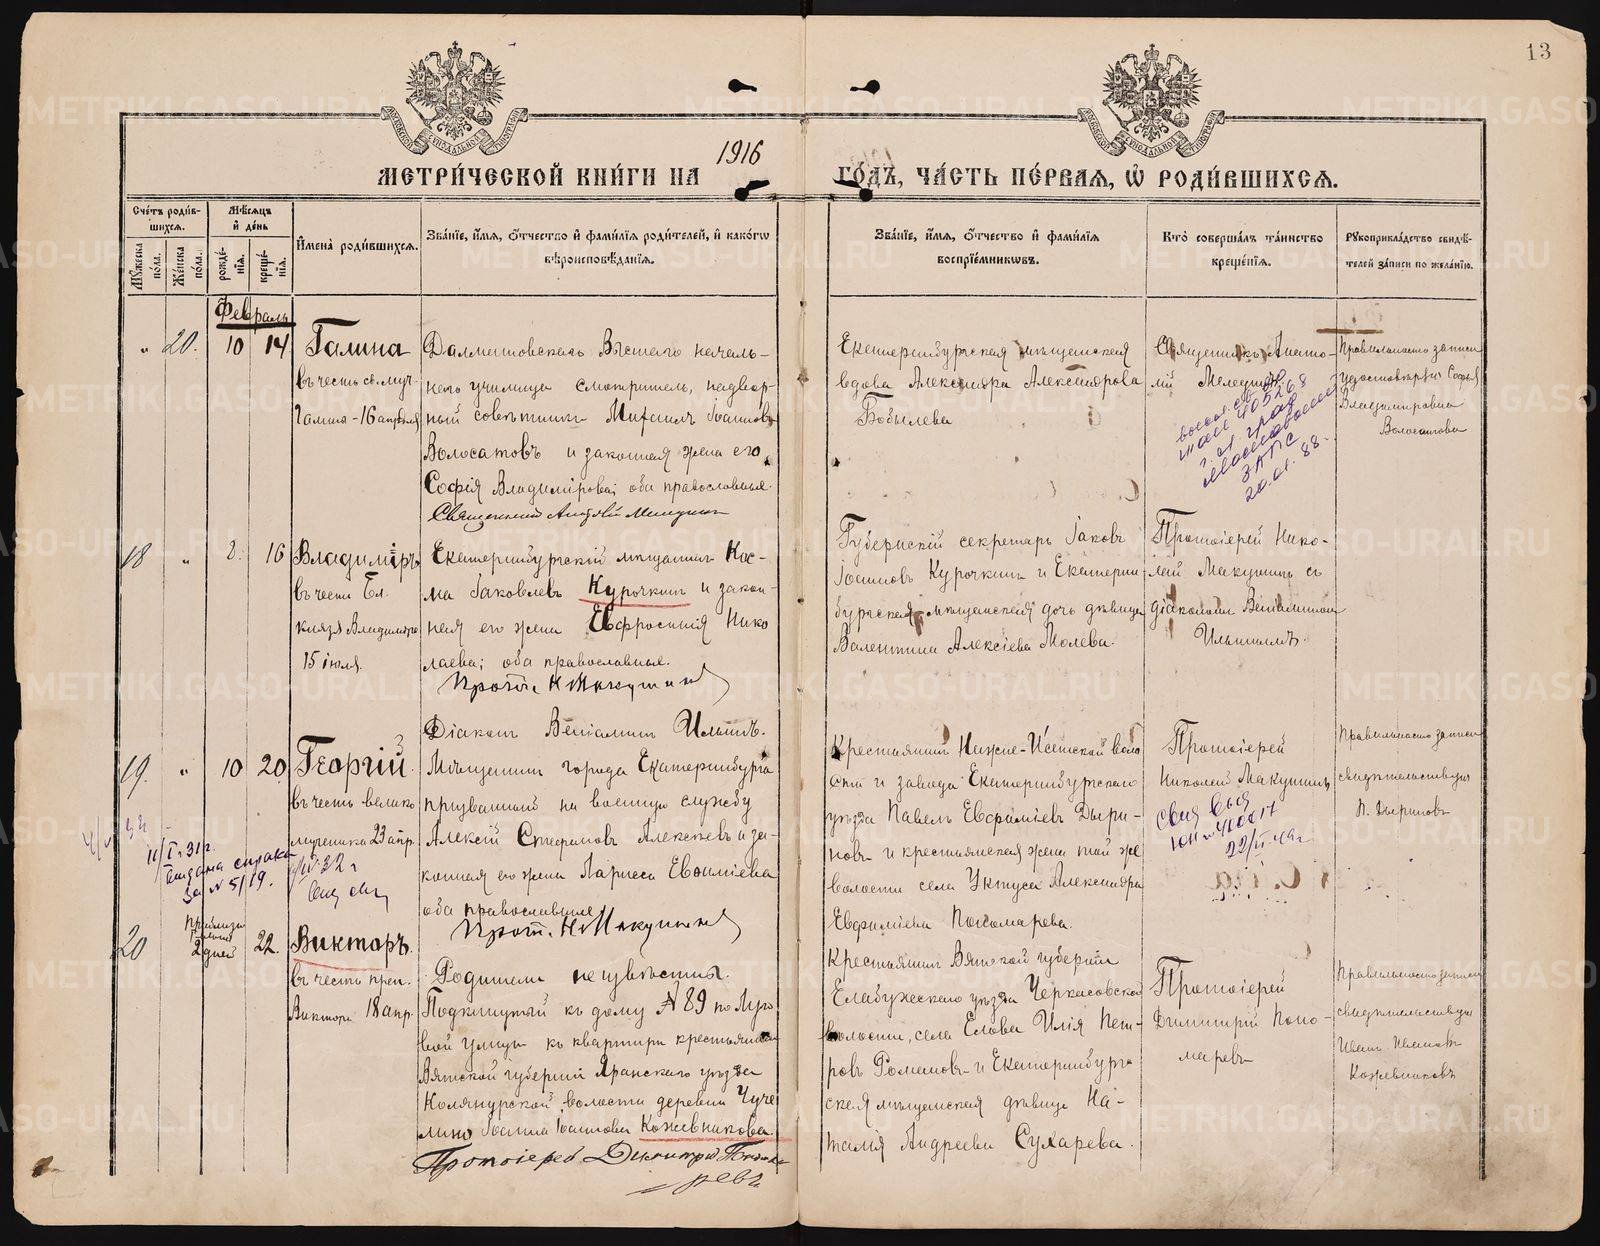 13
МОСКОВСКОЙ СѴНОДАЛЬНОЙ ТИПОГРАФІИ
МОСКОВСКОЙ СѴНОДАЛЬНОЙ ТИПОГРАФІИ
МЕТРИ́ЧЕСКОЙ КНИ́ГИ НА 1916 ГО́ДЪ, ЧА́СТЬ ПЕ́РВАЯ, Ѡ РОДИ́ВШИХСЯ.
Сче́тъ роди́в-
шихся.
Мꙋжеска по́ла.
Же́нска по́ла.
Мѣ́сяцъ
и҆ де́нь
рожде́-
нїя.
креще́-
нїя.
И҆мена̀ роди́вшихся.
Зва́нїе, и҆́мя, ѻ҆́тчество и҆ фами́лїя роди́телей, и҆ како́гѡ
вѣроисповѣ́данїя.
Зва́нїе, и҆́мя, ѻ҆́тчество и҆ фами́лїя
воспрїе́мникѡвъ.
Кто̀ соверша́лъ та́инство
креще́нїя.
Рꙋкоприкла́дство свидѣ́-
телей за́писи по жела́нїю.
Февраль
" 20. 10 14
Галина
въ честь св. муч.
Галина - 16 апрѣля
Далматовскаго Высшаго началь-
наго училища смотритель, надвор-
ный совѣтникъ Михаилъ Іоанновъ
Волосатовъ и законная жена его
Софія Владимірова; оба православные.
Священникъ Анатолій Мелединъ
Екатеринбургская мѣщанская
вдова Александра Александрова
Бобылева
Священникъ Анато-
лій Мелединъ
Правильность записи
удостовѣряю Софья
Владимировна
Волосатова
20.01.88.
18 " 2. 16
Владиміръ
въ честь Бл.
князя Владиміра
15 іюля.
Екатеринбургскій мѣщанинъ Кос-
ма Іаковлевъ Курочкинъ и закон-
ная его жена Евфросинія Нико
лаева; оба православные.
Прот. Н Макушинъ
Губернскій секретарь Іаковъ
Іоанновъ Курочкинъ и Екатерин
бургская мѣщанская дочь дѣвица
Валентина Алексіева Молева.
Протоіерей Нико-
лай Макушинъ съ
діакономъ Веніаминомъ
Ильинымъ.
Діаконъ Веніаминъ Ильинъ.
19. " 10 20
Георгій.
въ честь велико
мученика 23 апр.
Мѣщанинъ города Екатеринбурга
призванный на военную службу
Алексій Стефановъ Алексѣевъ и за-
конная его жена Лариса Евѳиміева
оба православные
Прот. Н Макушинъ
Крестьянинъ Нижне-Исетской воло
сти и завода Екатеринбургскаго
уѣзда Павелъ Евфиміевъ Дыри-
новъ и крестьянская жена той же
волости села Уктуса Александра
Евфиміева Пономарева.
Протоіерей
Николай Макушинъ
22/VI-49г
Правильность записи
свидѣтельствую
П. Дыриновъ
11/I-31г.
выдана справка
за № 5/19.
20 Приблизи
тельно
2 дней 22.
Викторъ.
въ честь преп.
Виктора 18 апр.
Родители неизвѣстны.
Подкинутый къ дому № 89 по Луго
вой улицѣ къ квартирѣ крестьянина
Вятской губерніи Яранскаго уѣзда
волости деревни
Іоанна Іоаннова Кожевникова.
Протоіерей Димитрій Понома-
ревъ
Крестьянинъ Вятской губерніи
Елабужскаго уѣзда Черкасовской
волости, села Елова Илія Пет-
ровъ Романовъ и Екатеринбург-
ская мѣщанская дѣвица На-
талія Андреева Сухарева.
Протоіерей
Димитрій Поно-
маревъ
Правильность записи
свидѣтельствую
Иванъ Ивановъ
Кожевниковъ
METRIKI.GASO-URAL.RU